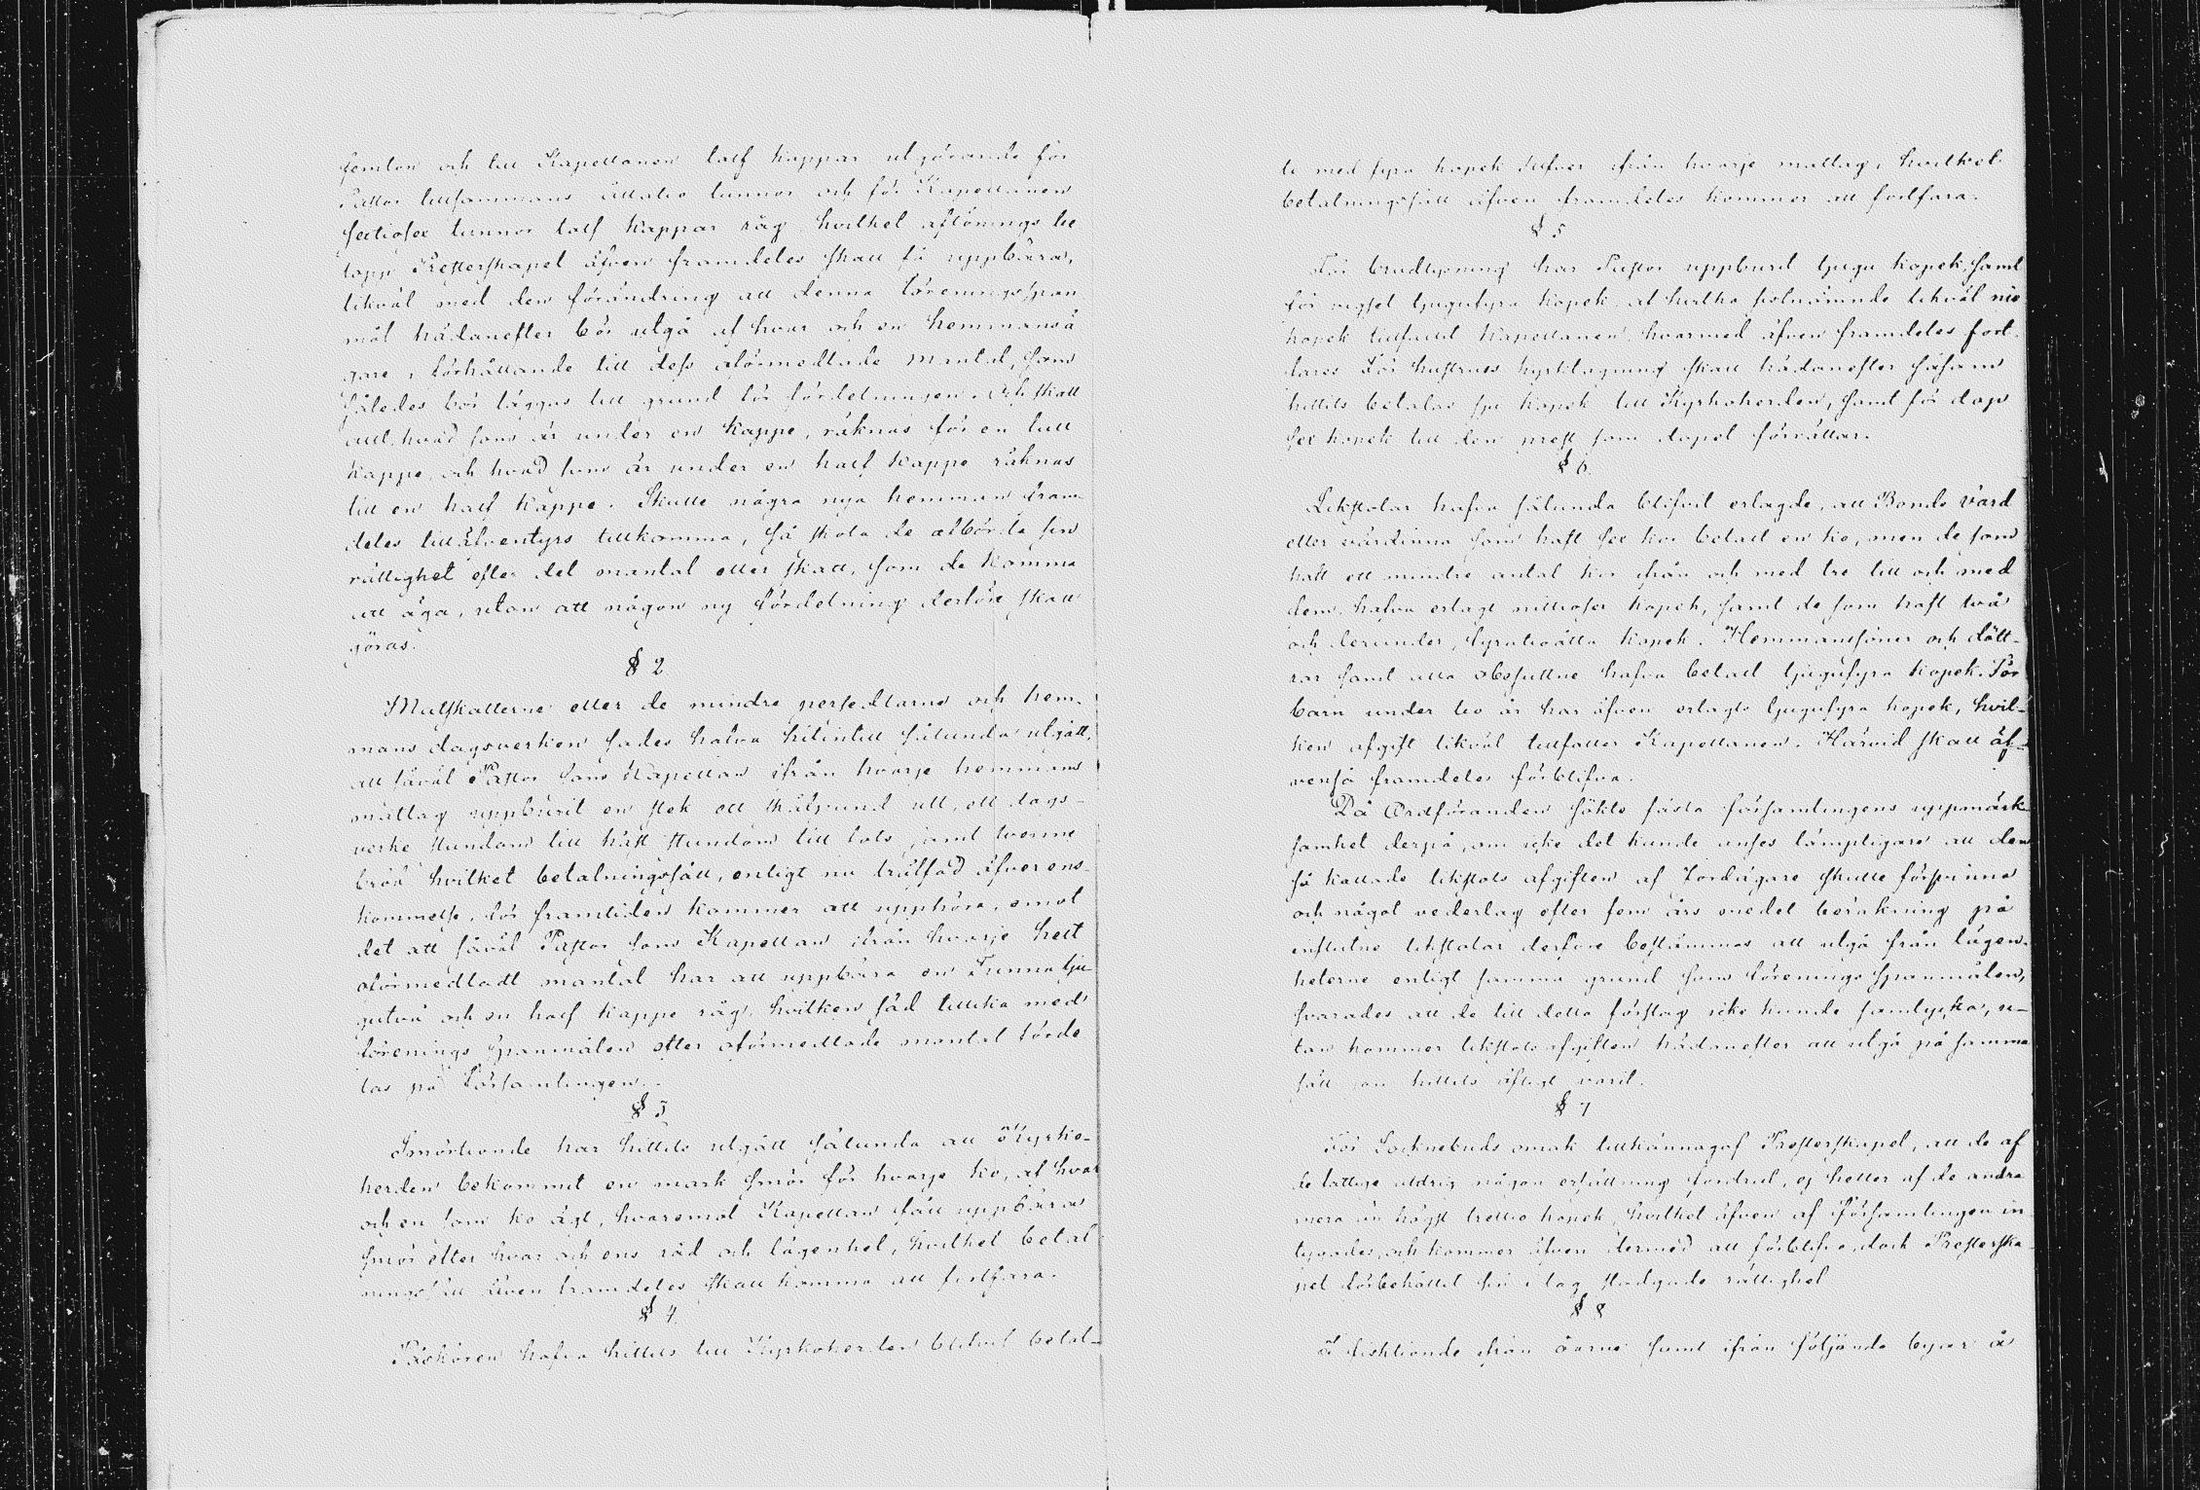 femton och till Kapellanen tolf kappar utgörande för
Pastor tillsammans åttatio tunnor och för Kapellanen
sextiosex tunnor tolf kappar råg hvilket aflönings be
lopp Presterskapet äfven framdeles skall få uppbära,
likväl med den förändring att denna löneningsspan
mål hädanefter bör utgå af hvar och en hemmansä
gare i förhållande till dess oförmedlade mantal, som
således bör läggas till grund för fördelningen. Och skall
allt, hvad som är under en kappe, räknas för en full
kappe, och hvad som är under en half kappe räknas
till en half kappe. Skulle några nya hemman fram-
deles till äfventyrs tillkomma, så skola de utbörda sin
rättighet efter det mantal eller skatt, som de komma
att äga, utan att någon ny fördelning derföre skall
göras.
§ 2
Matskatterne eller de mindre persedlarne och hem-
mans dagsverken hafva hitintill sålunda utgått,
att såväl Pastor som Kapellan ifrån hvarje hemmans
matlag uppburit en stek ett skålpund ull, ett dags-
verke stundom till häst stundom till fots samt tvenne
bröd hvilket betalningssätt, enligt nu träffad öfverens-
kommelse, för framtiden kommer att upphöra, emot
det att såväl Pastor som Kapellan ifrån hvarje helt
oförmedladt mantal har att uppbära en Tunna tju
gutvå och en half kappe råg, hvilken säd tillika med
lönenings spanmålen efter oförmedlade mantal förde
las på Församlingen.
§ 3
Smörtionde har hittils utgått sålunda att Kyrko-
herden bekommit en mark smör för hvarje ko, af hvar
och en som ko ägt, hvaremot Kapellan fått uppbära
smör efter hvar och ens råd och lägenhet, hvilket betal
ningssätt även framdeles skall komma att fortfara.
§ 4
Påskören hafva hittils till Kyrkoherden blifvit betal-
te med fyra kopek silfver ifrån hvarje matlag, hvilket
betalningssätt äfven framdeles kommer att fortfara.
§ 5
För brudlysning har Pastor uppburit tjugu kopek, samt
för vigsel tjugufyra kopek, af hvilka sistnämnde likväl nio
kopek tillfallit Kapellanen, hvarmed äfven framdeles fort
fares För hustrus kyrktagning skall hädanefter såsom
hittils betalas sju kopek till Kyrkoherden, samt för dop
sex kopek till den prest som dopet förrättar.
§ 6
Likstolar hafva sålunda blifvit erlagde, att Bonde värd
eller värdinna som haft sex kor betalt en ko, men de som
haft ett mindre antal kor ifrån och med tre till och med
fem, hafva erlagt nittiosex kopek, samt de som haft två
och derunder, fyratioåtta kopek. Hemmansöner och dött-
rar samt alla obesuttne hafva betalt tjugufyra kopek. För
barn under tio år har äfven erlagts tjugufyra kopek, hvil-
ken afgift likväl tillfaller Kapellanen. Härvid skall äf-
venså framdeles förblifva.
Då Ordföranden sökte fästa församlingens uppmärk-
samhet derpå, om icke det kunde anses lämpligare att den
så kallade likstols afgiften af Jordägare skulle försvinna
och något vederlag efter fem års medel beräkning på
influtne likstolar derföre bestämmas att utgå från lägen-
heterne enligt samma grund som lönenings spanmålen,
svarades att de till detta förslag icke kunde samtycka, u-
tan kommer likstols afgiften hädanefter att utgå på samma
sätt som hittils öfligt varit.
§ 7
För Socknebuds omak tillkännagaf Presterskapet, att de af
de fattige aldrig någon ersättning fordrat, ej heller af de andra
mera än högst trettio kopek, hvilket äfven af Församlingen in
tygades, och kommer äfven dermed att förblifva, dock Presterska-
pet förbehållit sin i lag stadgade rättighet
§ 8
I fisktionde ifrån öarne samt ifrån följande byar å